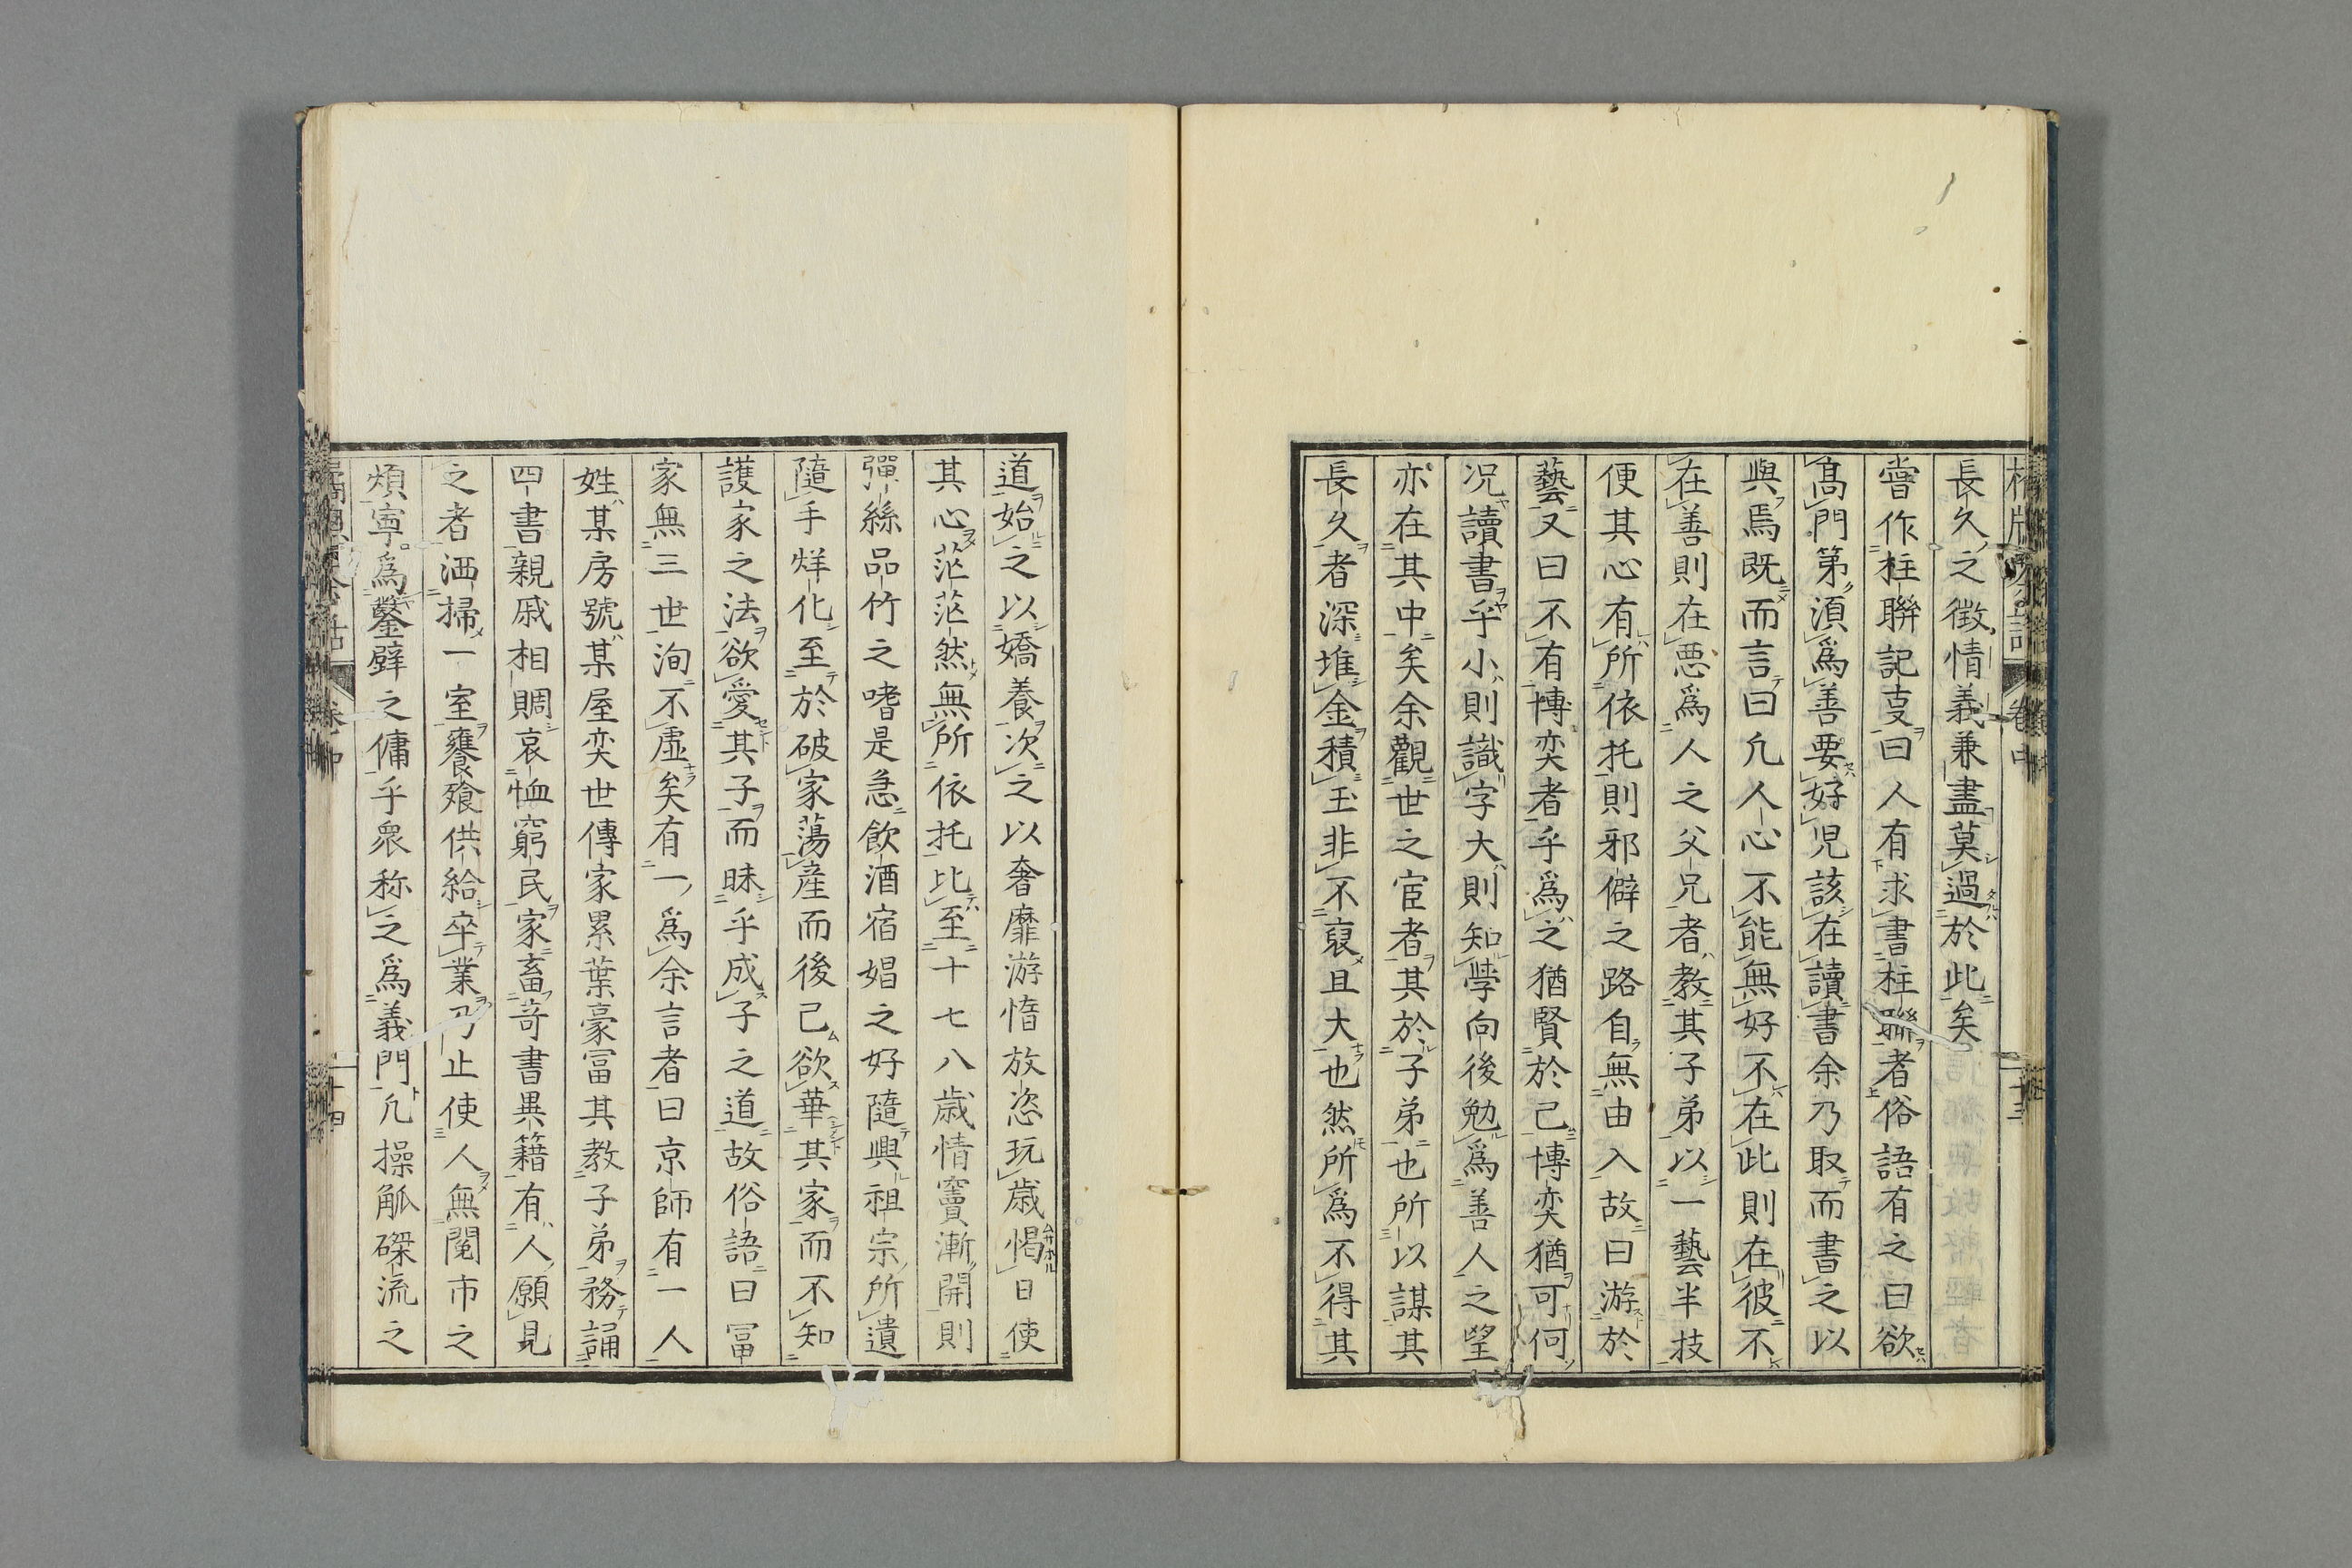 長久之徴情義兼盡莫過於此矣
甞作柱聯記㕝曰人有求書柱聯者俗語有之曰欲
髙門第湏爲善要好児該在讀書余乃取而書之以
與焉既而言曰凢人心不能無好不在此則在彼不
在善則在悪爲人之父兄者教其子弟以一藝半技
便其心有所依托則邪僻之路自無由入故曰游於
藝又曰不有博奕者乎爲之猶賢於己博奕猶可何
况讀書乎小則識字大則知學向後勉爲善人之望
亦在其中矣余觀世之宦者其於子弟也所以謀其
長久者深堆金積玉非不裒且大也然所爲不得其
道始之以嬌養次之以奢靡游惰放恣玩歳愒日使
其心茫茫然無所依托比至十七八歳情竇漸開則
彈絲品竹之嗜是急飲酒宿娼之好隨興祖宗所遺
隨手烊化至於破家蕩産而後已欲華其家而不知
護家之法欲愛其子而昧乎成子之道故俗語曰冨
家無三世洵不虚矣有一爲余言者曰京師有一人
姓某房號某屋奕世傳家累葉豪冨其教子弟務誦
四書親戚相賙哀恤窮民家畜奇書異籍有人願見
之者洒掃一室饔飱供給卒業乃止使人無閲市之
煩寧爲鑿壁之傭乎衆称之爲義門凢操觚磔流之